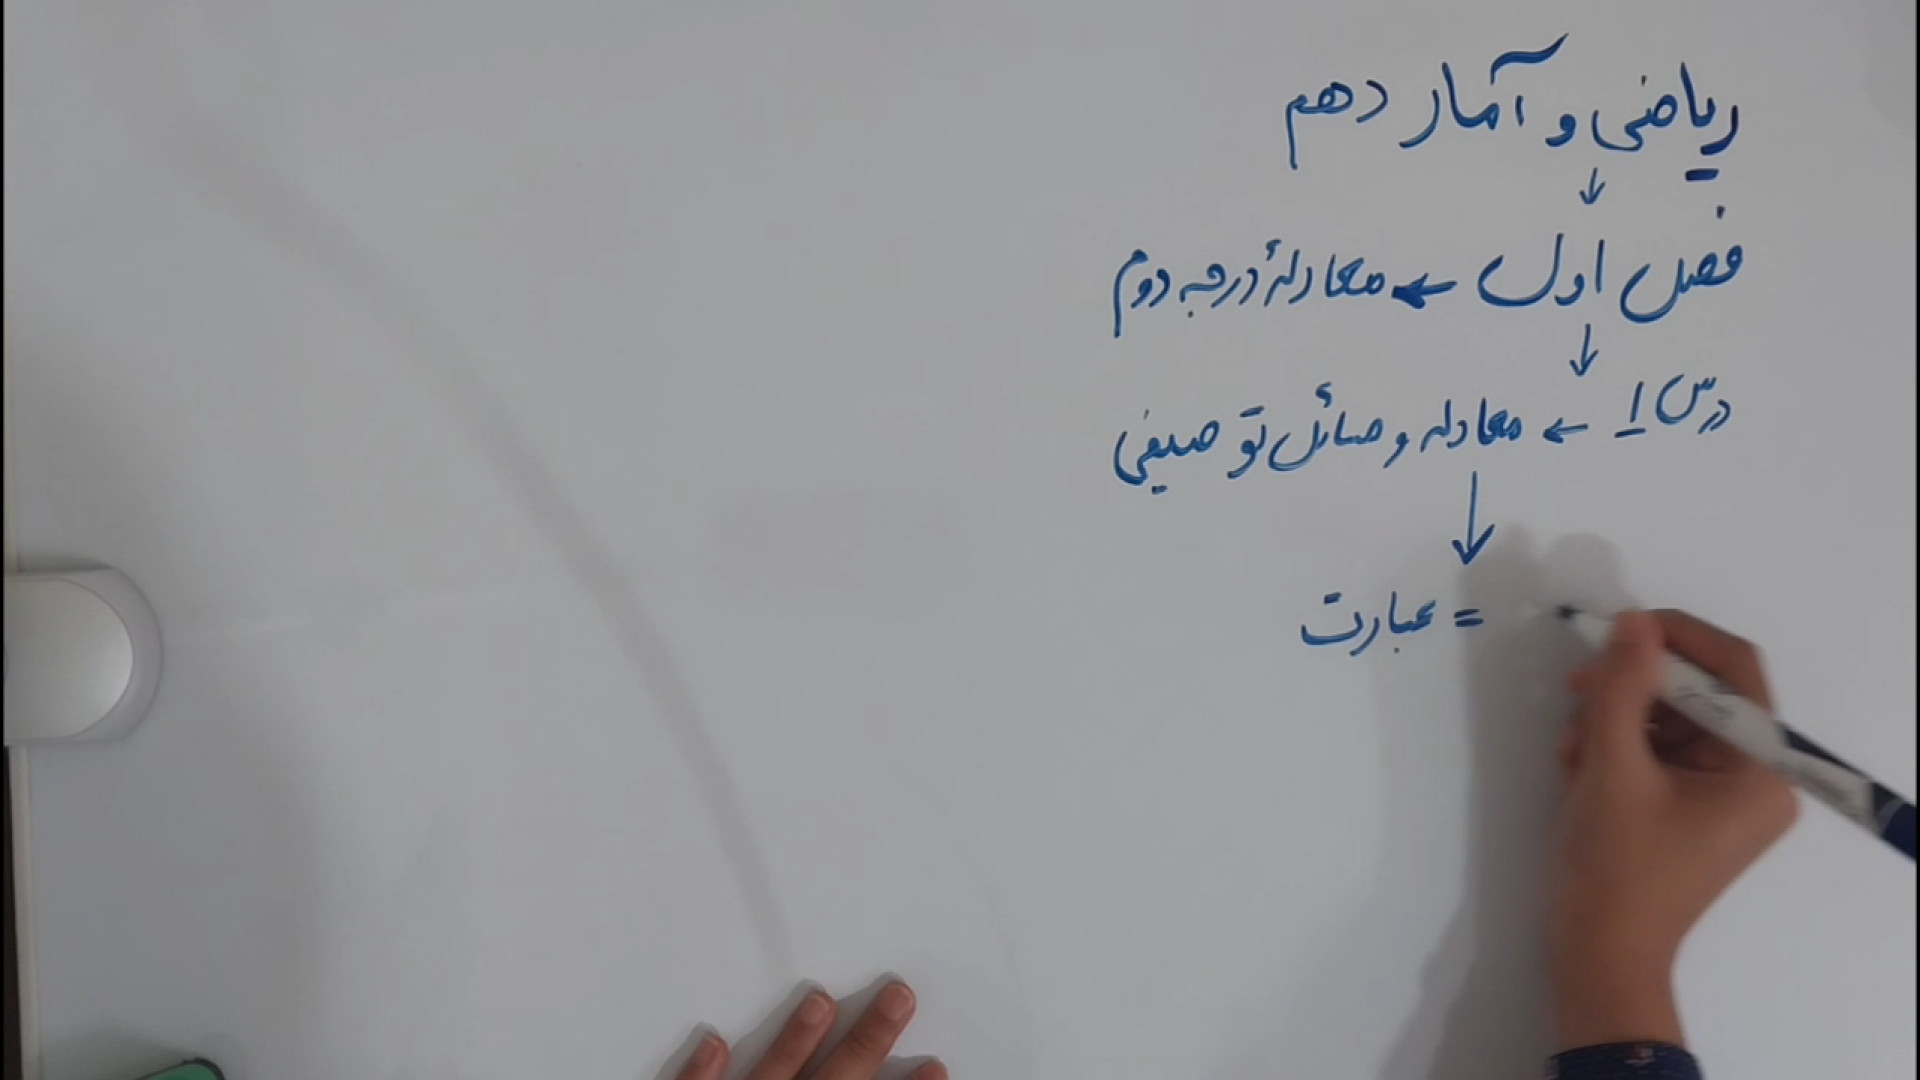 ریاضی و آمار دهم
↓
فصل اول ← معادلهٔ درجه دوم
↓
درس ۱ ← معادله و مسائل توصیفی
↓
= عبارت